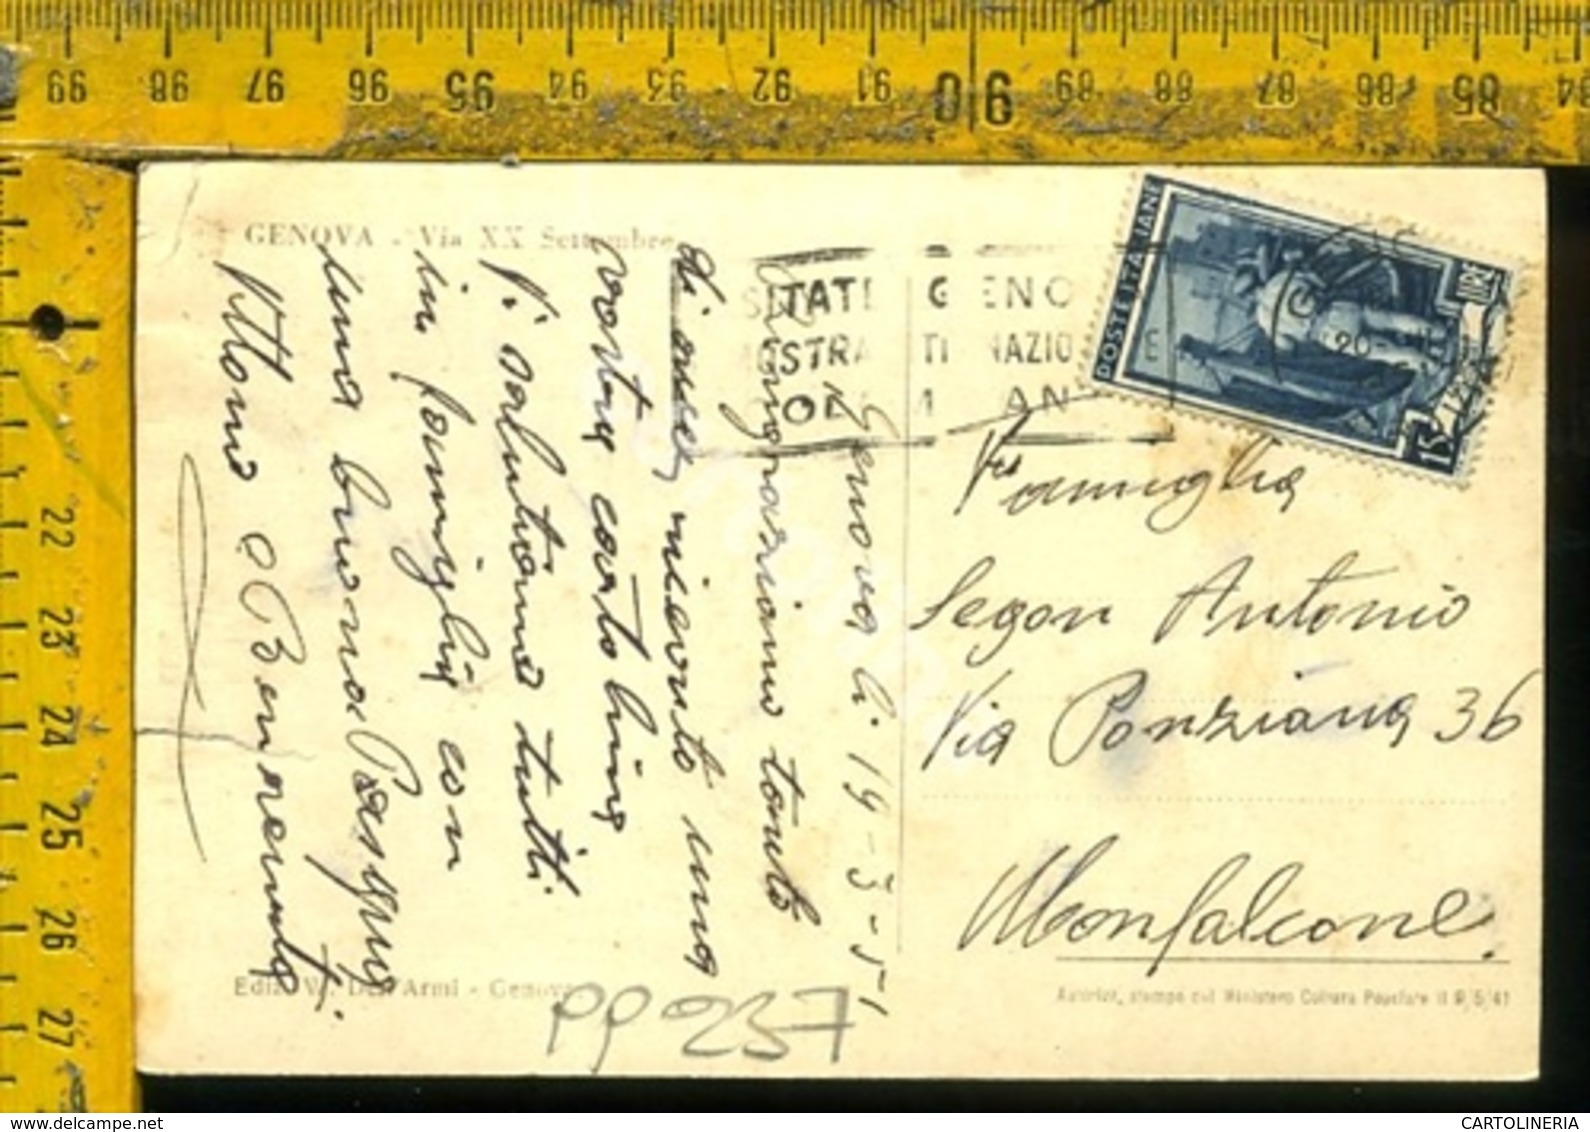 99 98 97 96 95 94 93 92 91 90 89 88 87 86 85 84
22
23
24
25
26
27
GENOVA - Via XX Settembre
POSTE ITALIANE
LIRE 15
Genova li 19-3-51
Ringraziamo tanto
di aver ricevuto una
vostra cartolina
Vi salutiamo tutti
in famiglia con
una buona Pasqua
Vittorio e Benvenuta
Famiglia
Segon Antonio
Via Ponziana 36
Monfalcone
Ediz. V. Dell'Armi - Genova
Autorizz. stampa del Ministero Cultura Popolare il 9/5/41
PP 237
CARTOLINERIA